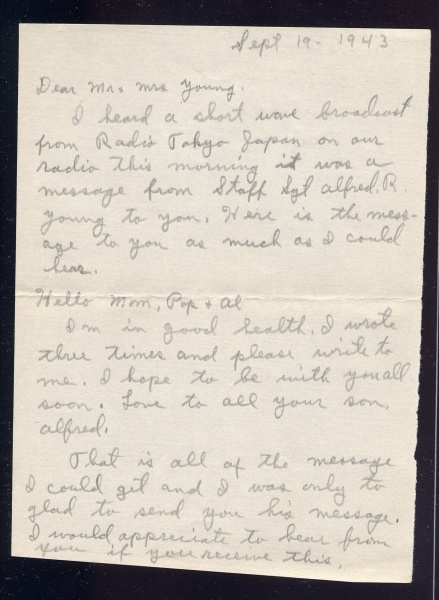 Sept 19 - 1943
Dear Mr & Mrs Young.
I heard a short wave broadcast
from Radio Tokyo Japan on our
radio this morning it was a
message from Staff Sgt Alfred. R.
Young to you. Here is the mess-
age to you as much as I could
hear.
Hello Mom, Pop & Al
I'm in good health. I wrote
three times and please write to
me. I hope to be with you all
soon. Love to all your son,
Alfred.
That is all of the message
I could get and I was only to
glad to send you his message.
I would appreciate to hear from
you if you receive this.